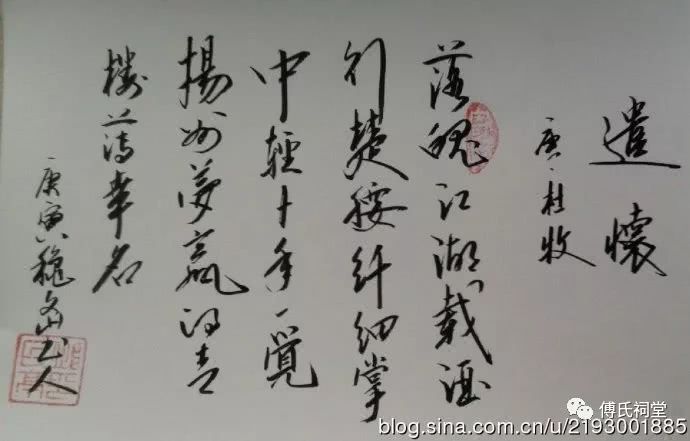 遣懷
唐·杜牧
落魄江湖載酒
行楚腰纤细掌
中輕十年一覺
揚州夢贏得青
樓薄幸名
庚寅穐 山人
傅氏祠堂
blog.sina.com.cn/u/2193001885